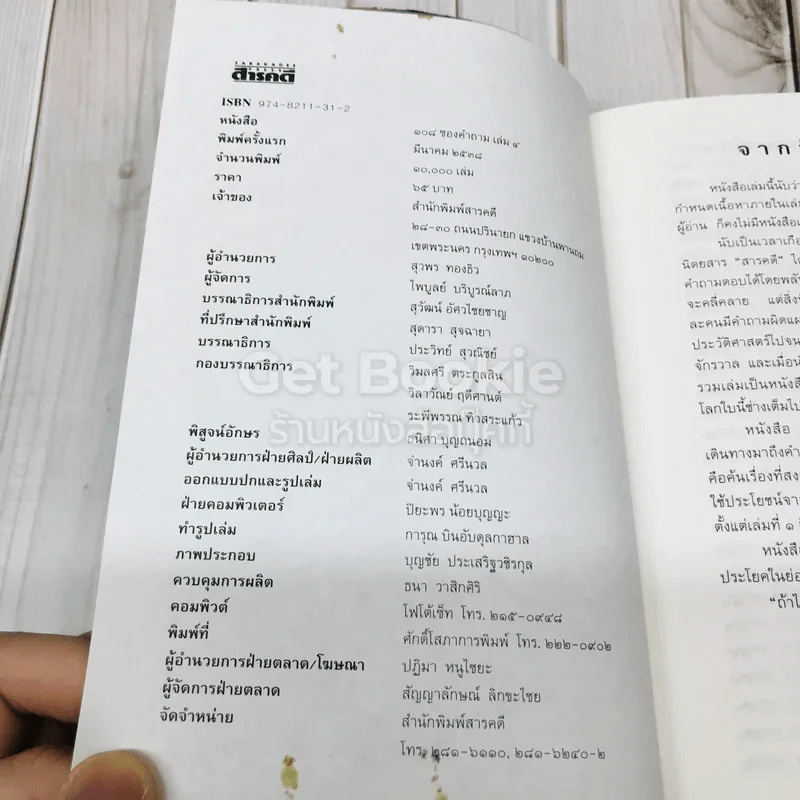 SARAKADEE
PRESS
สารคดี
ISBN 974-8211-31-2
หนังสือ ๑๐๘ ซองคำถาม เล่ม ๔
พิมพ์ครั้งแรก มีนาคม ๒๕๓๘
จำนวนพิมพ์ ๑๐,๐๐๐ เล่ม
ราคา ๖๕ บาท
เจ้าของ สำนักพิมพ์สารคดี
๒๘-๓๐ ถนนปรินายก แขวงบ้านพานถม
เขตพระนคร กรุงเทพฯ ๑๐๒๐๐
ผู้อำนวยการ สุวพร ทองธิว
ผู้จัดการ ไพบูลย์ บริบูรณ์ลาภ
บรรณาธิการสำนักพิมพ์ สุวัฒน์ อัศวไชยชาญ
ที่ปรึกษาสำนักพิมพ์ สุดารา สุจฉายา
บรรณาธิการ ประวิทย์ สุวณิชย์
กองบรรณาธิการ วิมลศรี ตระกูลสิน
วิลาวัณย์ ฤดีศานต์
ระพีพรรณ ทิวสระแก้ว
พิสูจน์อักษร ธนิศา บุญถนอม
ผู้อำนวยการฝ่ายศิลป์/ฝ่ายผลิต จำนงค์ ศรีนวล
ออกแบบปกและรูปเล่ม จำนงค์ ศรีนวล
ฝ่ายคอมพิวเตอร์ ปิยะพร น้อยบุญญะ
ทำรูปเล่ม การุณ บินอับดุลกาฮาล
ภาพประกอบ บุญชัย ประเสริฐวชิรกุล
ควบคุมการผลิต ธนา วาสิกศิริ
คอมพิวต์ โฟโต้เซ็ท โทร. ๒๑๕-๐๙๔๘
พิมพ์ที่ ศักดิ์โสภาการพิมพ์ โทร. ๒๒๒-๐๙๐๒
ผู้อำนวยการฝ่ายตลาด/โฆษณา ปฏิมา หนูไชยะ
ผู้จัดการฝ่ายตลาด สัญญาลักษณ์ ลิกขะไชย
จัดจำหน่าย สำนักพิมพ์สารคดี
โทร. ๒๘๑-๖๑๑๐, ๒๘๑-๖๒๔๐-๒
Get Bookie
ร้านหนังสือบุ๊คกี้
จาก
หนังสือเล่มนี้นับว่า
กำหนดเนื้อหาภายในเล่ม
ผู้อ่าน ก็คงไม่มีหนังสือ
นับเป็นเวลาเกือ
นิตยสาร “สารคดี” ได้
คำถามตอบได้โดยพลัน
จะคลี่คลาย แต่สิ่ง
ละคนมีคำถามผิดแผ
ประวัติศาสตร์ไปจน
จักรวาล และเมื่อนำ
รวมเล่มเป็นหนังสือ
โลกใบนี้ช่างเต็มไป
หนังสือ
เดินทางมาถึงคำ
คือค้นเรื่องที่สง
ใช้ประโยชน์จา
ตั้งแต่เล่มที่ ๑
หนังสือ
ประโยคในย่อ
“ถ้าไ